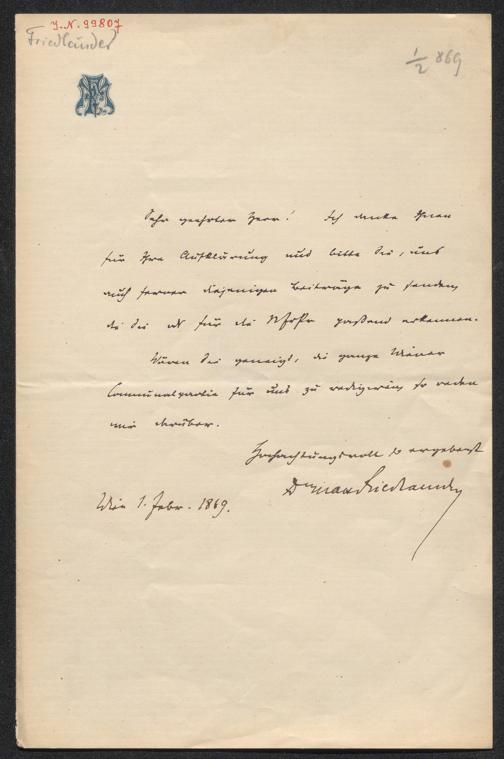 J.-N. 99807
Friedländer
1/2 869
Sehr geehrter Herr! Ich danke Ihnen
für Ihre Aufklärung und bitte Sie, uns
auch ferner diejenigen Beiträge zu senden,
die Sie als für die NfrPr passend erkennen.
Wären Sie geneigt, die ganze Wiener
Communalpartie für uns zu redigiren, so reden
wir darüber.
Hochachtungsvoll ergebenst
Dr Max Friedlaender
Wien 1. Febr. 1869.